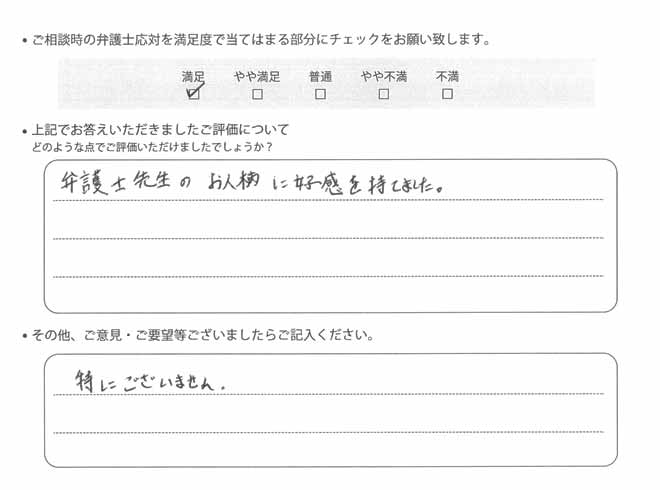 ・ご相談時の弁護士応対を満足度で当てはまる部分にチェックをお願い致します。
満足 やや満足 普通 やや不満 不満
☑ □ □ □ □
・上記でお答えいただきましたご評価について
どのような点でご評価いただけましたでしょうか？
弁護士先生の お人柄 に好感を持てました。
・その他、ご意見・ご要望等ございましたらご記入ください。
特にございません。